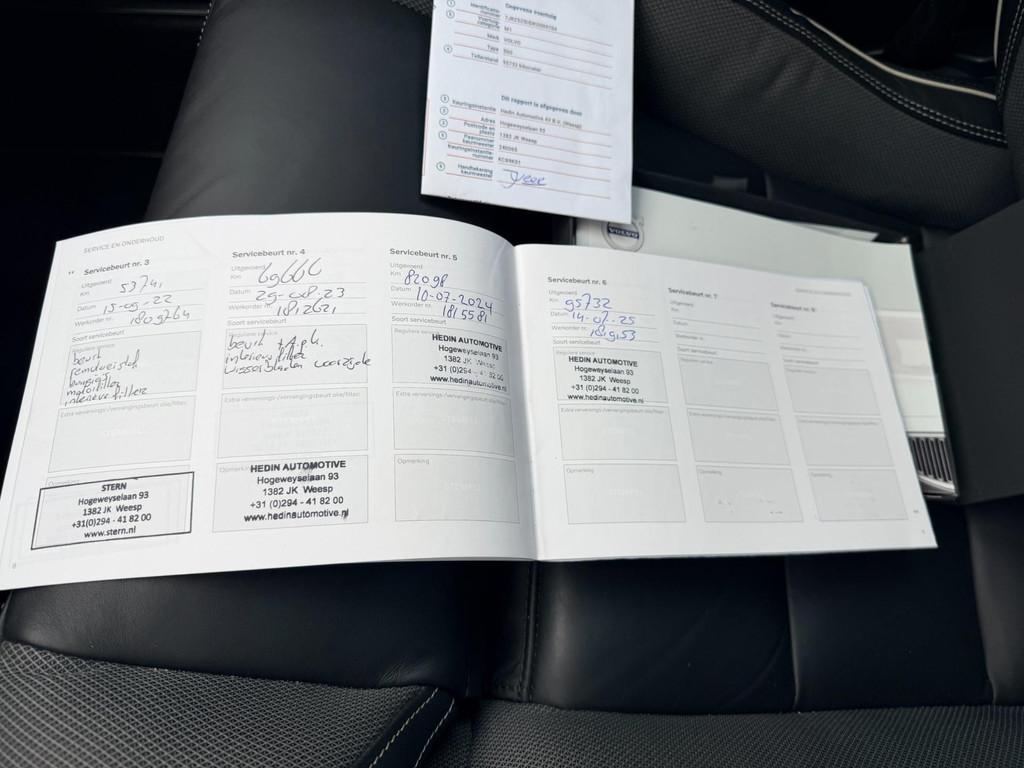 Gegevens voertuig
Identificatienummer
Voertuigcategorie M1
Merk VOLVO
Type S60
Tellerstand 95733 kilometer
Dit rapport is afgegeven door
Keuringsinstantie Hedin Automotive AV B.V. (Weesp)
Adres Hogeweyselaan 93
Postcode en plaats 1382 JK Weesp
Pasnummer keurmeester
Keuringsinstantienummer
Handtekening keurmeester
VOLVO
SERVICE EN ONDERHOUD
Servicebeurt nr. 3
Uitgevoerd
Km 53741
Datum 15-09-22
Werkorder nr. 1809764
Soort servicebeurt
beurt
remvloeistof
motorfilter
interieurfilter
Extra verversings-/vervangingsbeurt olie/filter:
Opmerking
STERN
Hogeweyselaan 93
1382 JK Weesp
+31(0)294 - 41 82 00
www.stern.nl
8
Servicebeurt nr. 4
Uitgevoerd
Km 69666
Datum 29-08-23
Werkorder nr. 1812621
Soort servicebeurt
beurt + A.p.k.
interieurfilter
wisserbladen voorzijde
Extra verversings-/vervangingsbeurt olie/filter:
Opmerking
HEDIN AUTOMOTIVE
Hogeweyselaan 93
1382 JK Weesp
+31 (0)294 - 41 82 00
www.hedinautomotive.nl
Servicebeurt nr. 5
Uitgevoerd
Km 82098
Datum 10-07-2024
Werkorder nr. 1815581
Soort servicebeurt
Reguliere service
HEDIN AUTOMOTIVE
Hogeweyselaan 93
1382 JK Weesp
+31 (0)294 - 41 82 00
www.hedinautomotive.nl
Extra verversings-/vervangingsbeurt olie/filter:
Opmerking
Servicebeurt nr. 6
Uitgevoerd
Km 95732
Datum 14-07-25
Werkorder nr. 1819153
Soort servicebeurt
Reguliere service
HEDIN AUTOMOTIVE
Hogeweyselaan 93
1382 JK Weesp
+31 (0)294 - 41 82 00
www.hedinautomotive.nl
Extra verversings-/vervangingsbeurt olie/filter:
Opmerking
Servicebeurt nr. 7
Uitgevoerd
Km
Datum
Werkorder nr.
Soort servicebeurt
Reguliere service
Extra verversings-/vervangingsbeurt olie/filter:
Opmerking
SERVICE EN ONDERHOUD
Servicebeurt nr. 8
Uitgevoerd
Km
Datum
Werkorder nr.
Soort servicebeurt
Reguliere service
Extra verversings-/vervangingsbeurt olie/filter:
Opmerking